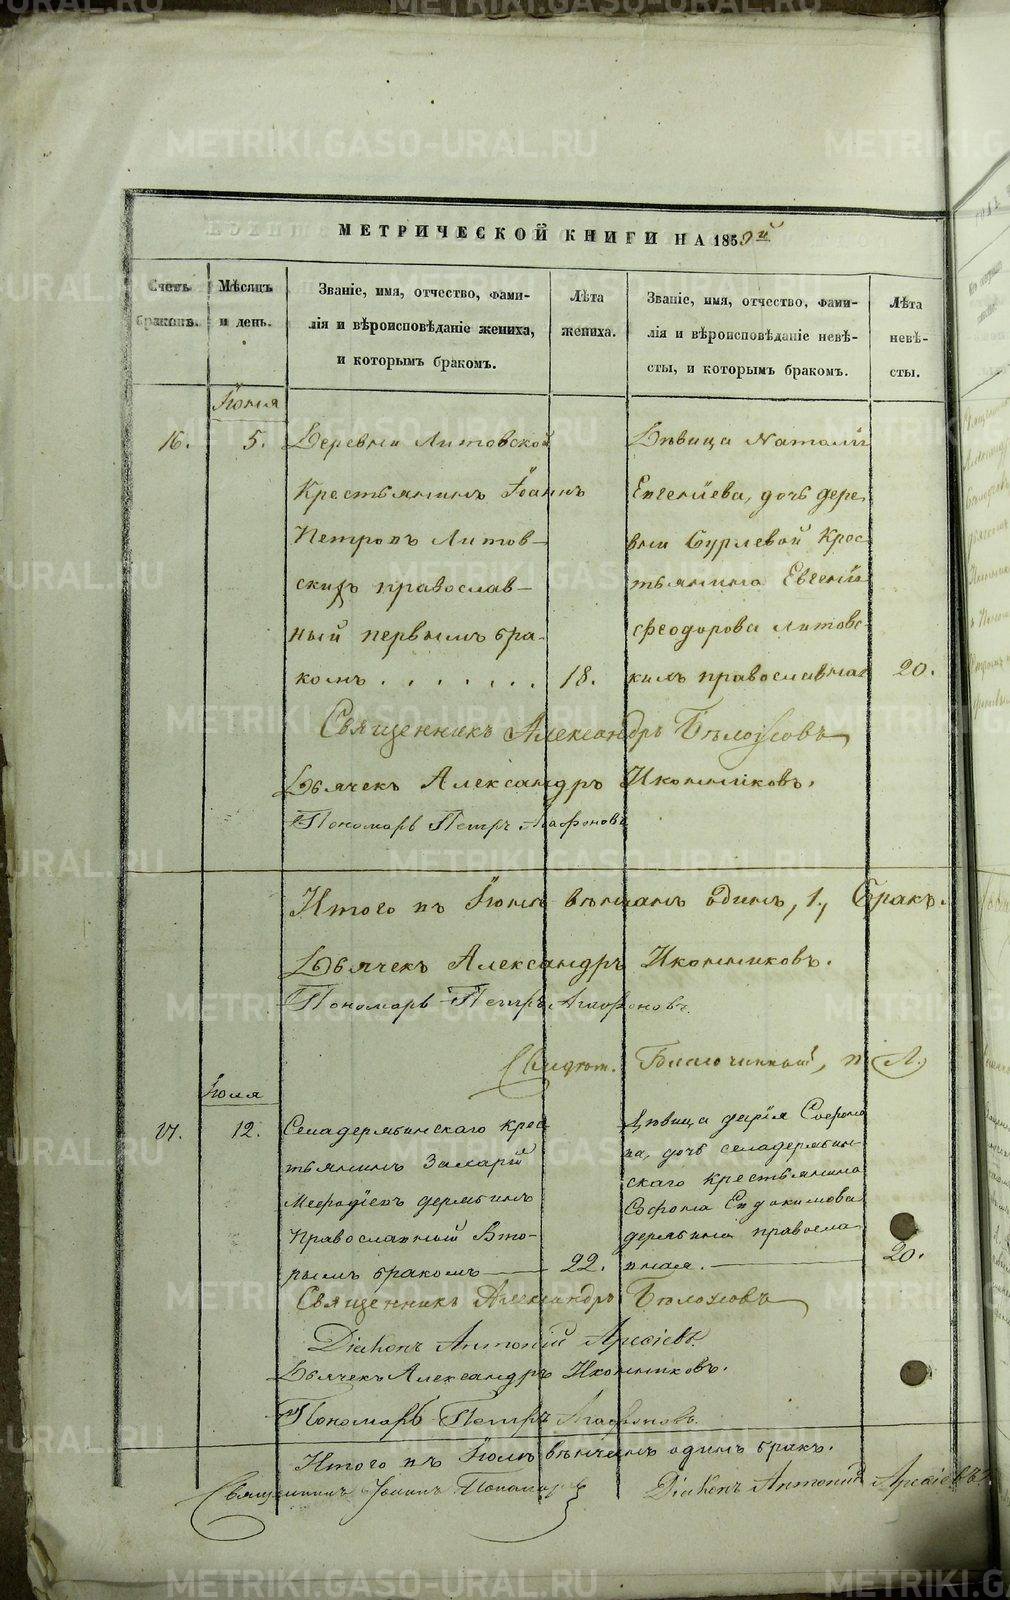 МЕТРИЧЕСКОЙ КНИГИ НА 1859й
Счетъ браковъ.
Мѣсяцъ и день.
Званіе, имя, отчество, фами-
лія и вѣроисповѣданіе жениха,
и которымъ бракомъ.
Лѣта
жениха.
Званіе, имя, отчество, фами-
лія и вѣроисповѣданіе невѣ-
сты, и которымъ бракомъ.
Лѣта
невѣ-
сты.
Іюня
16.
5.
Деревни Литовской
Крестьянинъ Іоаннъ
Петровъ Литов-
скихъ православ-
ный первымъ бра-
комъ
18.
Дѣвица Наталія
Евгеніева, дочь дере
вни Бурлевой Крес
тьянина Евгенія
Феодорова Литовс
кихъ православная
20.
Священникъ Александръ Бѣлоусовъ
Дьячекъ Александръ Иконниковъ.
Пономарь Петръ Агафоновъ
Итого въ Іюнѣ вѣнчанъ одинъ, 1, бракъ.
Дьячекъ Александръ Иконниковъ.
Пономарь Петръ Агафоновъ.
Благочинный,
Іюля
17.
12.
Селадермбинскаго крес
тьянинъ Захарій
Мефодіевъ дермбинъ
Православный Вто-
рымъ бракомъ
22.
Дѣвица дарія Софроно
ва, дочь селадермбин-
скаго крестьянина
Софрона Евдокимова
дермбина правосла
вная.
20.
Священникъ Александръ Бѣлоусовъ
Діаконъ Антоній Арсеіевъ
Дьячекъ Александръ Иконниковъ.
Пономарь Петръ Агафоновъ
Итого въ Іюлѣ вѣнчанъ одинъ бракъ.
Священникъ Іоаннъ Пономаревъ
Діаконъ Антоній Арсеіевъ
METRIKI.GASO-URAL.RU